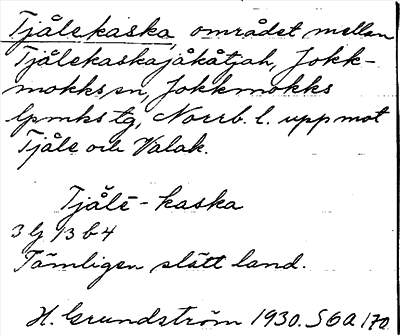 Tjålekaska, området mellan
Tjålekaskajåkåtjah, Jokk-
mokks sn, Jokkmokks
lpmks tg, Norrb. l. upp mot
Tjåle och Valak.
Tjålē-kaska
3 13 b 4
Tämligen slätt land.
H. Grundström 1930. S 6 a 170